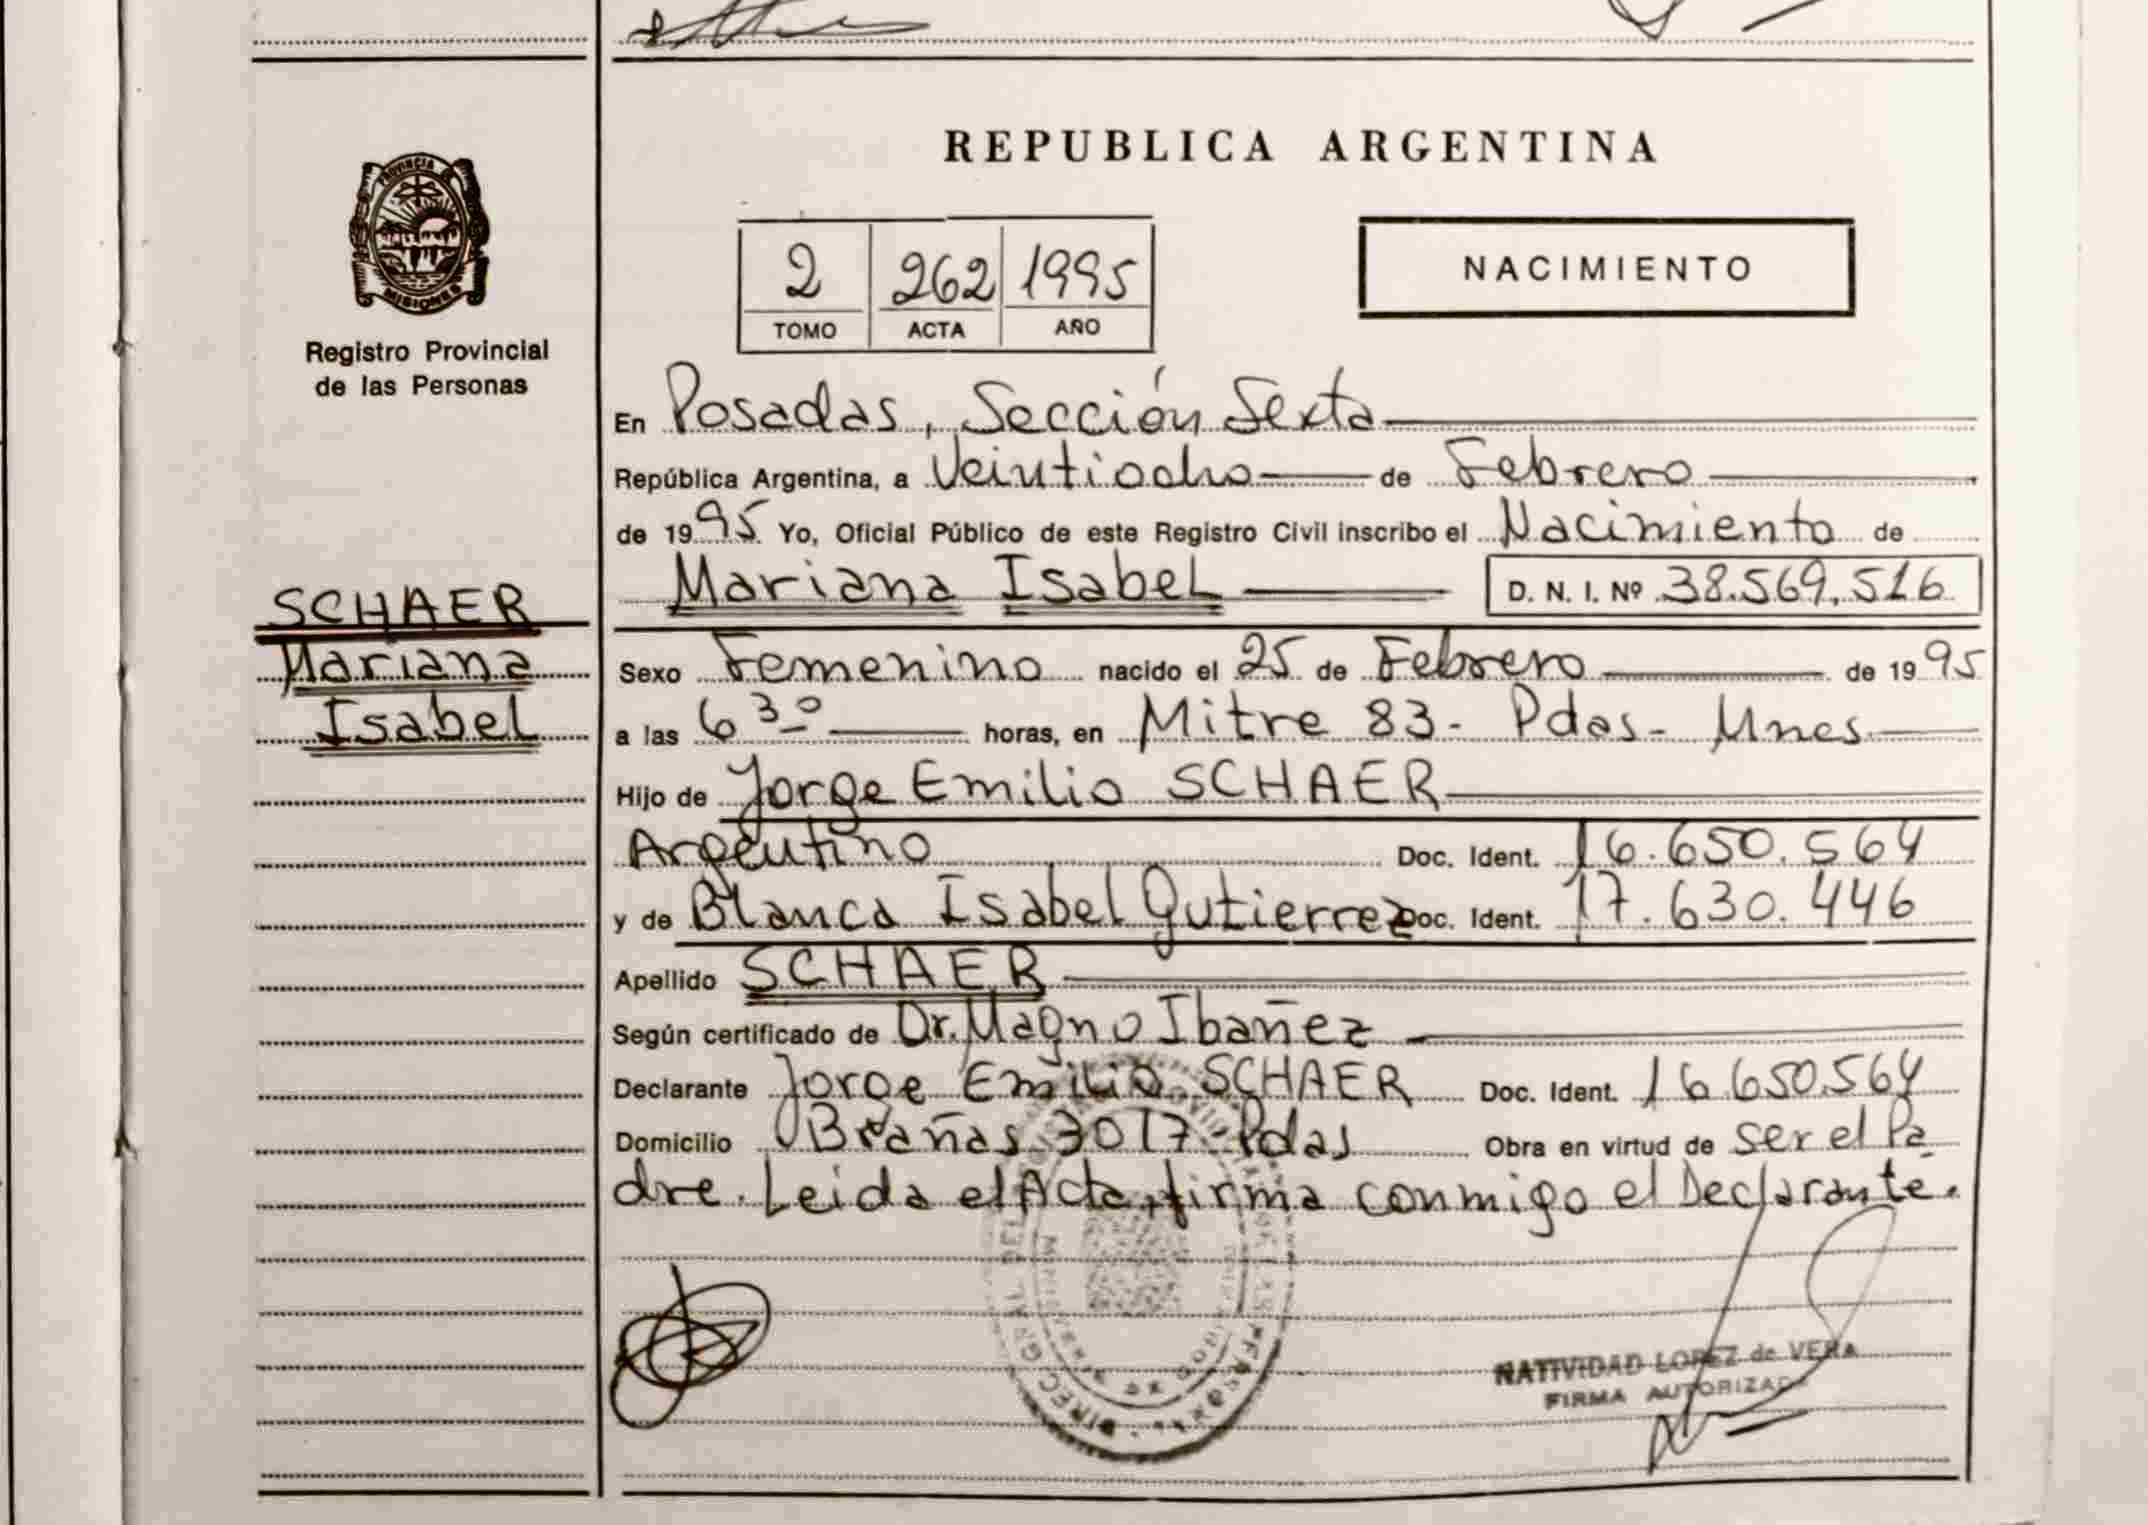 REPUBLICA ARGENTINA
PROVINCIA DE
MISIONES
Registro Provincial
de las Personas
2 262 1995
TOMO ACTA AÑO
NACIMIENTO
En Posadas, Sección Sexta
República Argentina, a Veintiocho de Febrero
de 1995 Yo, Oficial Público de este Registro Civil inscribo el Nacimiento de
Mariana Isabel D. N. I. Nº 38.569.516
SCHAER
Mariana
Isabel
Sexo Femenino nacido el 25 de Febrero de 1995
a las 6 30 horas, en Mitre 83- Pdas- Mnes
Hijo de Jorge Emilio SCHAER
Argentino Doc. Ident. 16.650.564
y de Blanca Isabel Gutierrez Doc. Ident. 17.630.446
Apellido SCHAER
Según certificado de Dr. Magno Ibañez
Declarante Jorge Emilio SCHAER Doc. Ident. 16.650.564
Domicilio Brañas 3017-Pdas Obra en virtud de ser el Pa
dre. Leida el Acta, firma conmigo el Declarante.
NATIVIDAD LOPEZ de VERA
FIRMA AUTORIZADA